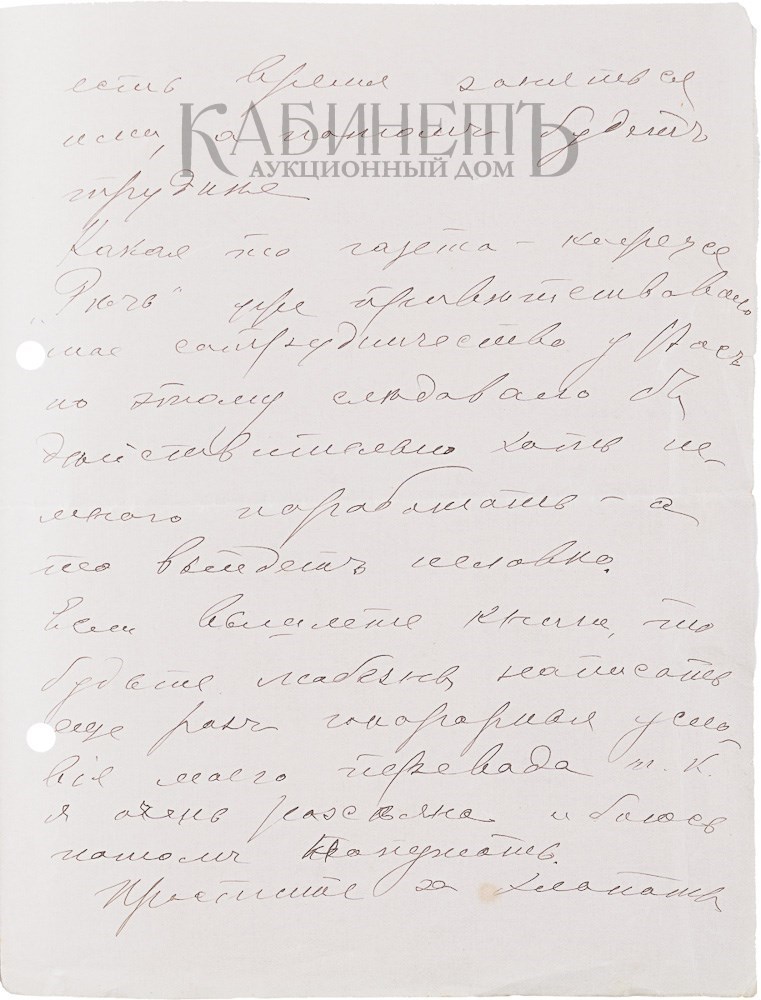 есть время заняться
ими, а потомъ будетъ
КАБИНЕТЪ
АУКЦИОННЫЙ ДОМ
труднѣе
Какая то газета – кажется
„Рѣчь“ уже привѣтствовало
мое сотрудничество у Васъ
по этому слѣдовало бы
дѣйствительно хоть не-
много поработать – а
то выйдетъ неловко.
Если вышлете книги, то
будьте любезны написать
еще разъ гонорарныя усло-
вія моего перевода т. к.
я очень разсѣяна и боюсь
потомъ напутать.
Простите за хлопоты